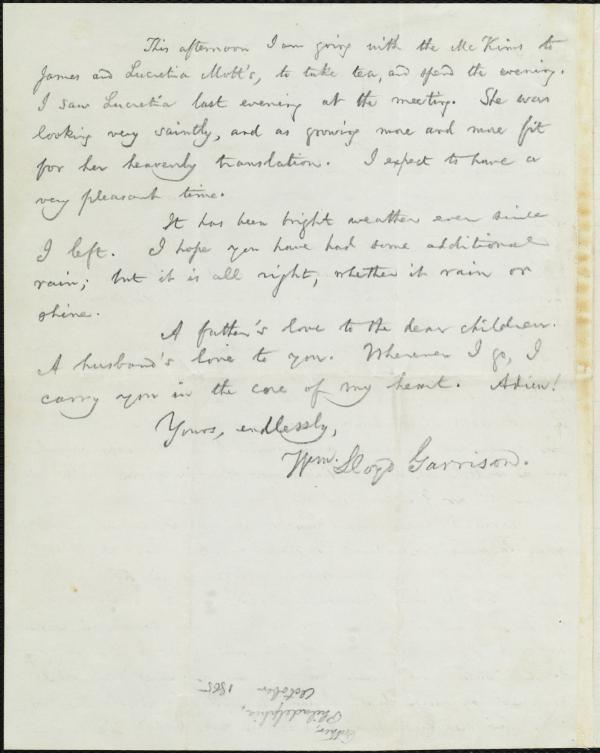 This afternoon I am going with the McKims to
James and Lucretia Mott's, to take tea, and spend the evening.
I saw Lucretia last evening at the meeting. She was
looking very saintly, and as growing more and more fit
for her heavenly translation. I expect to have a
very pleasant time.
It has been bright weather ever since
I left. I hope you have had some additional
rain; but it is all right, whether it rain or
shine.
A father's love to the dear children.
A husband's love to you. Wherever I go, I
carry you in the core of my heart. Adieu!
Yours, endlessly,
Wm. Lloyd Garrison.
Philadelphia,
October 1865